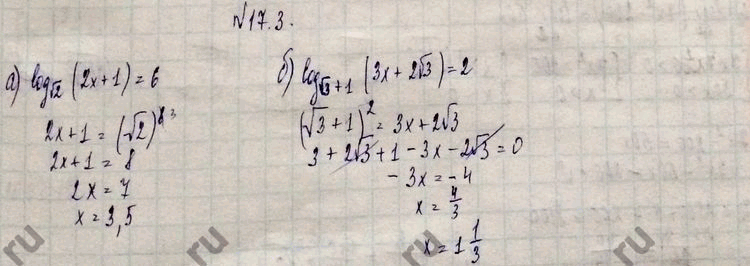 №17.3.
а) log√2 (2x+1) = 6
2x+1 = (√2)⁶
2x+1 = 8
2x = 7
x = 3,5
б) log√3+1 (3x+2√3) = 2
(√3+1)² = 3x+2√3
3+2√3+1-3x-2√3 = 0
-3x = -4
x = 4/3
x = 1 1/3
ru
ru
ru
ru